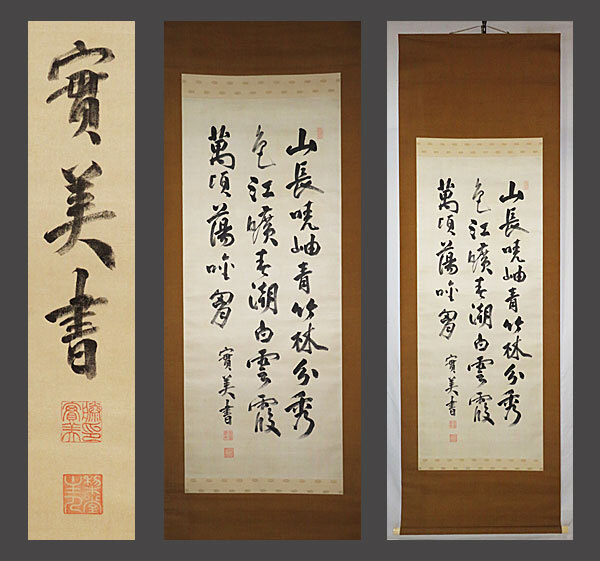 實美書
山長曉岫青竹林分秀
色江曠春潮白雲霞
萬頃蕩吟胷
實美書
山長曉岫青竹林分秀
色江曠春潮白雲霞
萬頃蕩吟胷
實美書